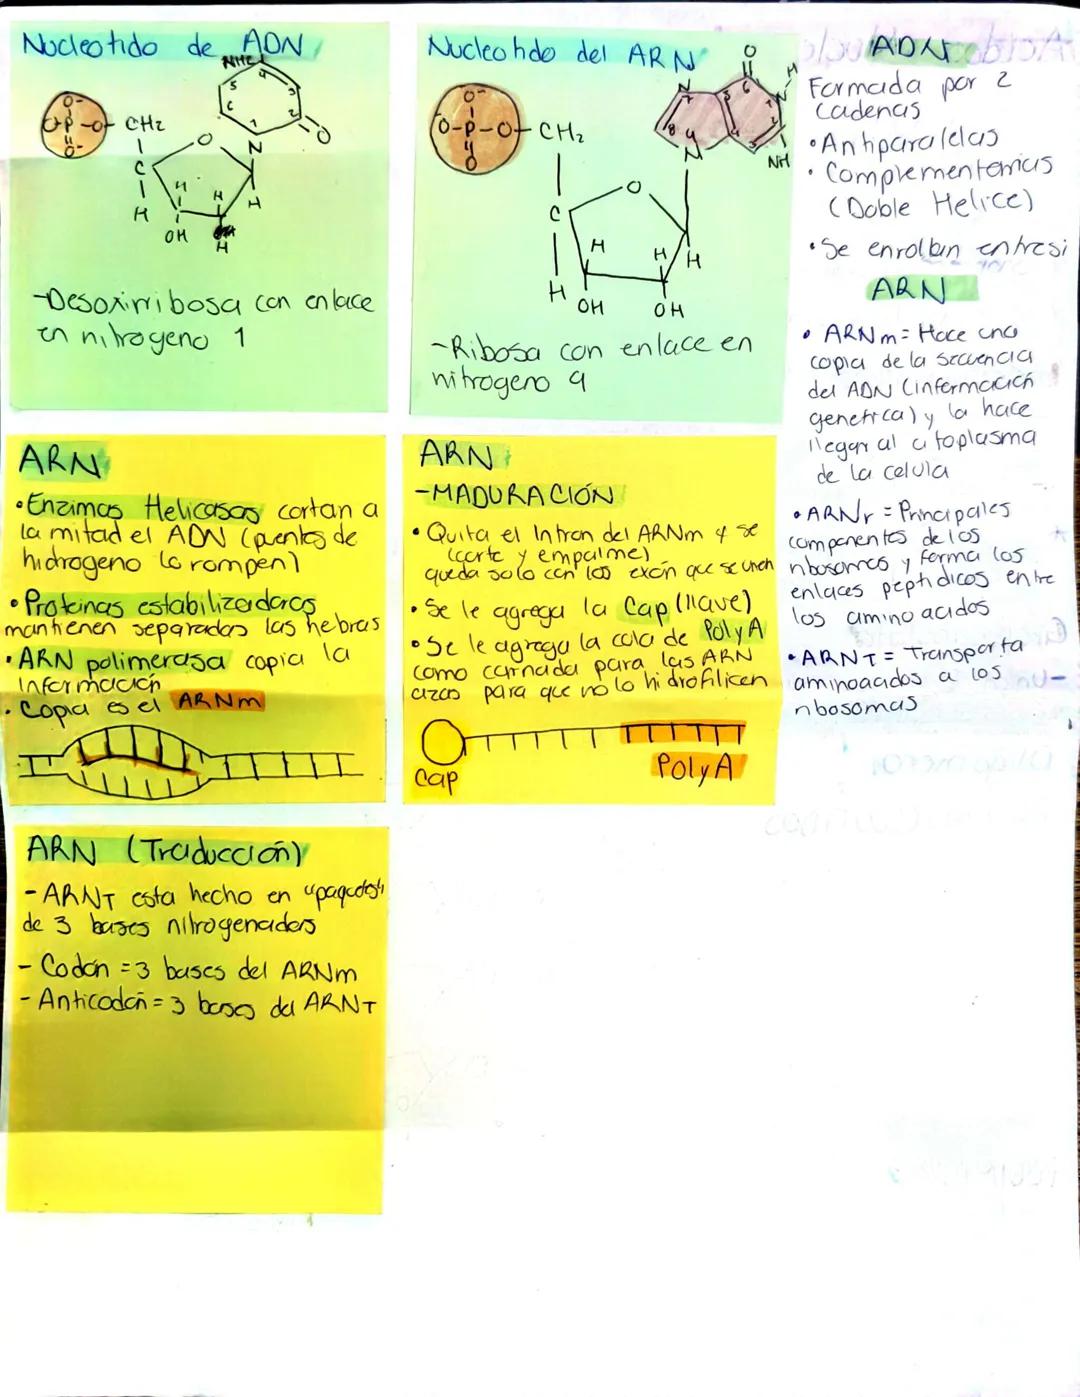 Nucleotido de ADN
NHC
4
5
3
6
2
1
O
N
O-
O-P-O-
O
O-
CH2
O
C
H
H
H
H
OH
H
-Desoxirribosa con enlace
en nitrogeno 1
Nucleotido del ARN
O-
O-P-O-
O
CH2
O
C
H
H
H
H
OH
OH
N
7
8
9
N
5
6
O
1
N
H
2
3
4
NH
-Ribosa con enlace en
nitrogeno 9
ADN
Formada por 2
cadenas
•Antiparalelas
•Complementarias
(Doble Helice)
•Se enrollan entresi
ARN
• ARNm = Hace una
copia de la secuencia
del ADN (informacion
genetica) y la hace
llegar al citoplasma
de la celula
• ARNr = Principales
componentes de los
ribosomas y forma los
enlaces peptidicos entre
los amino acidos
• ARNT = Transporta
aminoacidos a los
ribosomas
ARN
•Enzimas Helicasas cortan a
la mitad el ADN (puentes de
hidrogeno lo rompen)
•Proteinas estabilizadoras
mantienen separadas las hebras
•ARN polimerasa copia la
información
•Copia es el ARNm
ARN
-MADURACIÓN
• Quita el Intron del ARNm y se
(corte y empalme)
queda solo con los exón que se unen
• Se le agrega la Cap (llave)
• Se le agrega la cola de PolyA
como carnada para las ARN
azas para que no lo hidrofilicen
Cap
PolyA
ARN (Traducción)
-ARNT esta hecho en "paquetes"
de 3 bases nitrogenadas
- Codón = 3 bases del ARNm
- Anticodón = 3 bases del ARNT